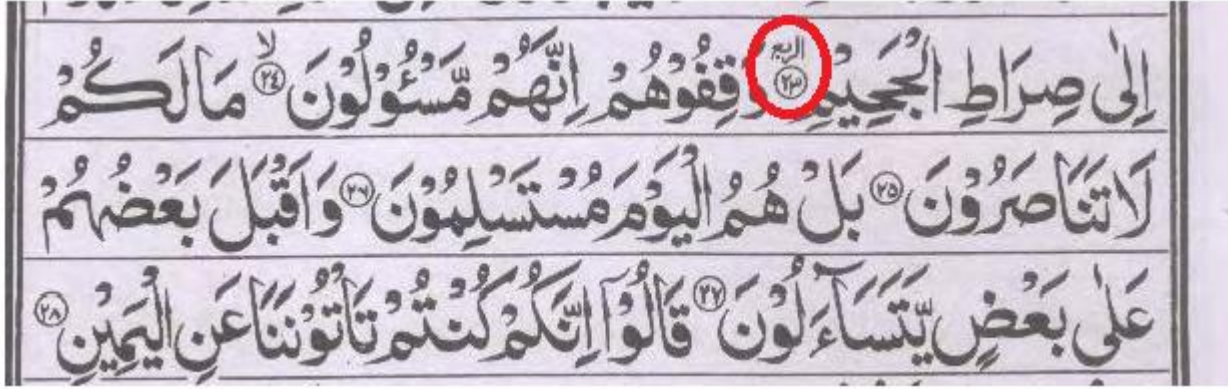 اِلٰى صِرَاطِ الْجَحِيْمِ ﴿۲۳﴾ الربع وَقِفُوْهُمْ اِنَّهُمْ مَّسْـُٔوْلُوْنَ ﴿۲۴﴾ۙ مَا لَكُمْ
لَا تَنَاصَرُوْنَ ﴿۲۵﴾ بَلْ هُمُ الْيَوْمَ مُسْتَسْلِمُوْنَ ﴿۲۶﴾ وَاَقْبَلَ بَعْضُهُمْ
عَلٰى بَعْضٍ يَّتَسَآءَلُوْنَ ﴿۲۷﴾ قَالُوْٓا اِنَّكُمْ كُنْتُمْ تَاْتُوْنَنَا عَنِ الْيَمِيْنِ ﴿۲۸﴾